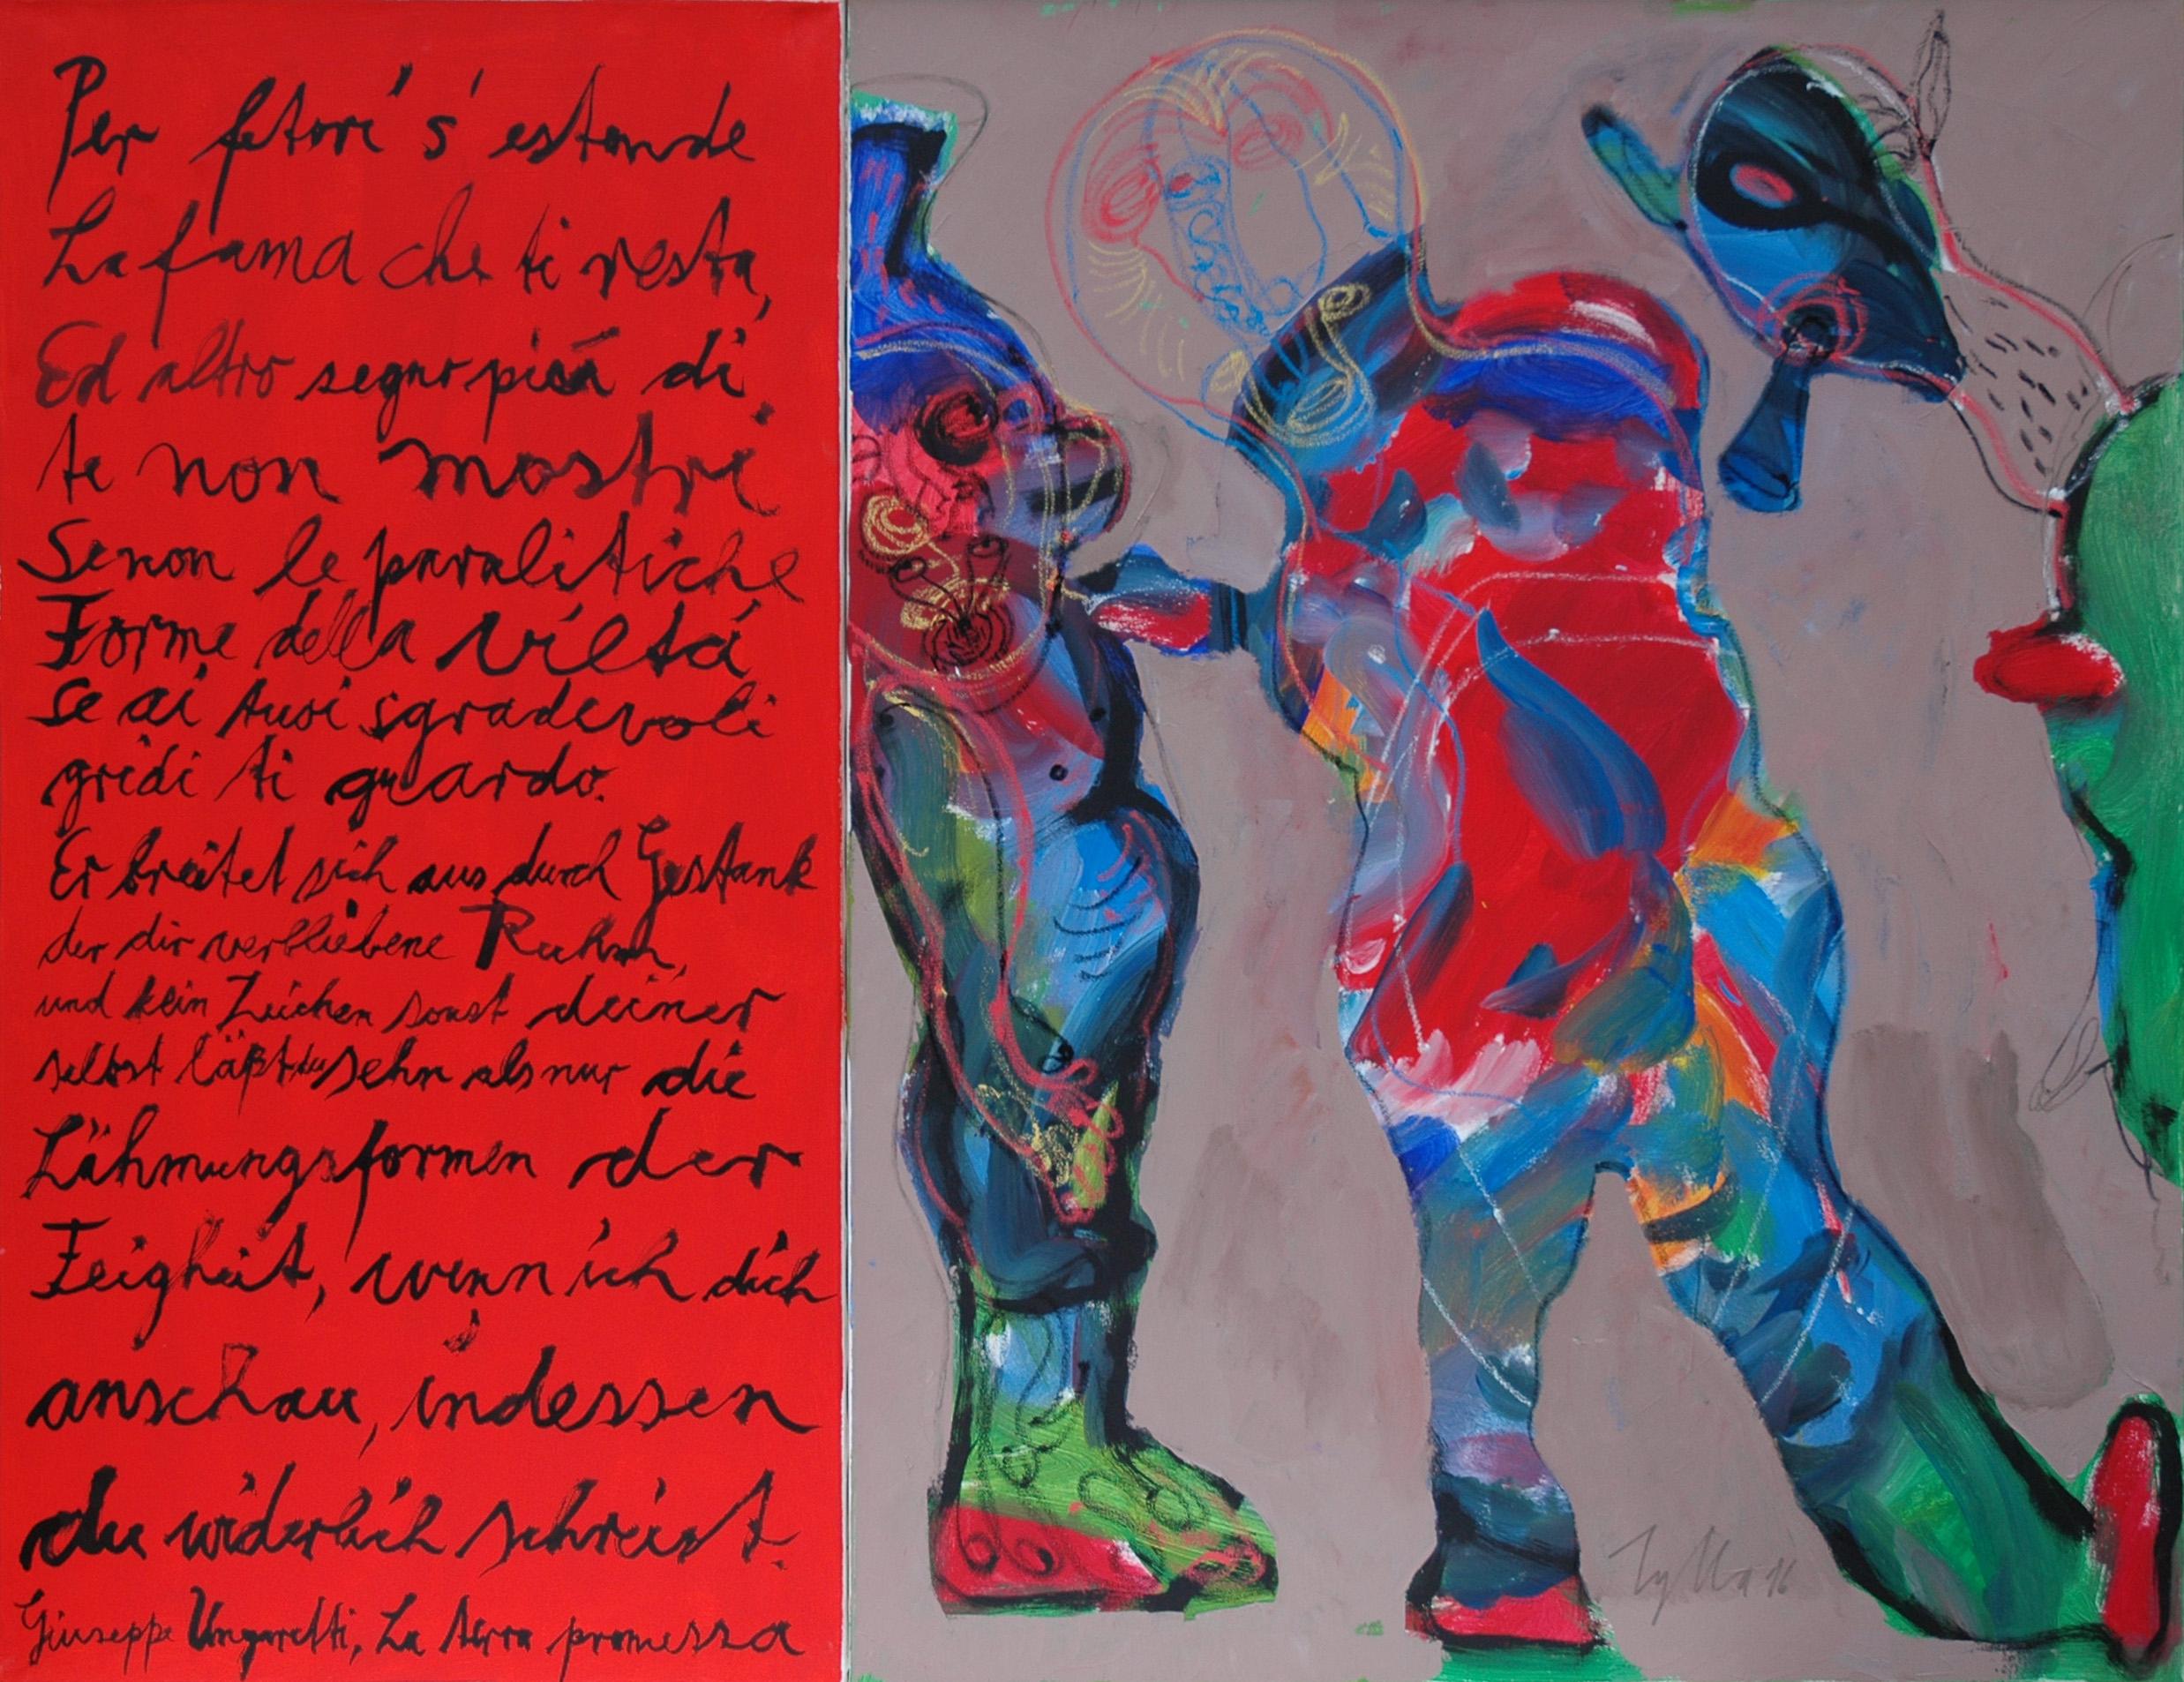 Per fetori s'estende
La fama che ti resta,
Ed altro segno piú di
te non mostri
Se non le paralitiche
Forme della viltá
Se ai tuoi sgradevoli
gridi ti guardo.
Er breitet sich aus durch Gestank
der dir verbliebene Ruhm,
und kein Zeichen sonst deiner
selbst läßt du sehn als nur die
Lähmungsformen der
Feigheit, wenn ich dich
anschau, indessen
du widerlich schreist.
Giuseppe Ungaretti, La terra promessa
Zylla 96